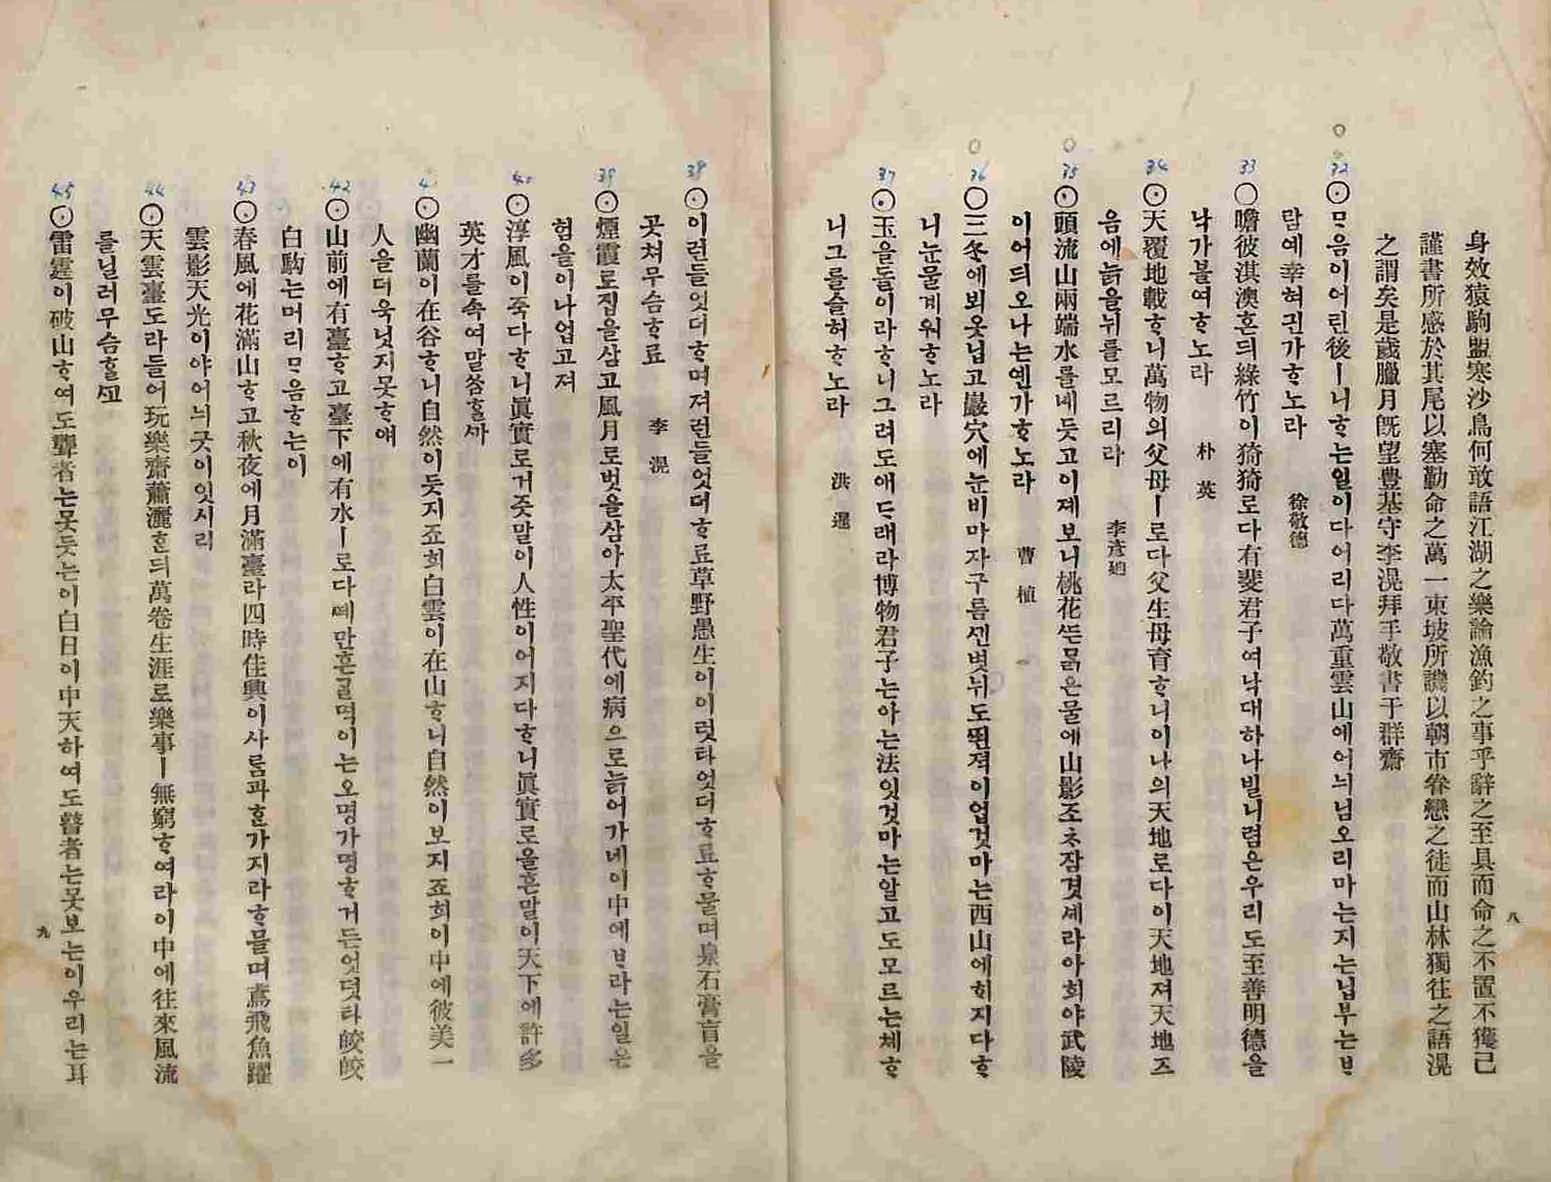 身效猿駒盟寒沙鳥何敢語江湖之樂論漁釣之事乎辭之至具而命之不置不獲已
謹書所感於其尾以塞勤命之萬一東坡所譏以朝市眷戀之徒而山林獨往之語滉
之謂矣是歲臘月旣望豊基守李滉拜手敬書于群齋
32 ⊙ᄆᆞ음이어린後ㅣ니ᄒᆞ는일이다어리다萬重雲山에어늬님오리마는지는닙부는ᄇᆞ
람예幸혀긘가ᄒᆞ노라 徐敬德
33 ○瞻彼淇澳혼듸綠竹이猗猗로다有斐君子여낙대하나빌니렴은우리도至善明德을
낙가볼여ᄒᆞ노라 朴英
34 ⊙天覆地載ᄒᆞ니萬物의父母ㅣ로다父生母育ᄒᆞ니이나의天地로다이天地져天地즈
음에늙을뉘를모르리라 李彦迪
35 ⊙頭流山兩端水를녜듯고이졔보니桃花ᄯᅳᆫ묽은물에山影조ᄎᆞ잠겻셰라아희야武陵
이어듸오나는옌가ᄒᆞ노라 曹植
36 ○三冬에뵈옷닙고巖穴에눈비마자구름ᄭᅵᆫ볏뉘도ᄶᅬᆫ젹이업것마는西山에ᄒᆡ지다ᄒᆞ
니눈물계워ᄒᆞ노라
37 ⊙玉을돌이라ᄒᆞ니그려도애ᄃᆞ래라博物君子는아는法잇것마는알고도모르는체ᄒᆞ
니그를슬허ᄒᆞ노라 洪暹
八
38 ⊙이런들엇더ᄒᆞ며져런들엇더ᄒᆞ료草野愚生이이럿타엇더ᄒᆞ료ᄒᆞ물며泉石膏盲을
곳쳐무슴ᄒᆞ료 李滉
39 ⊙煙霞로집을삼고風月로벗을삼아太平聖代에病으로늙어가네이中에ᄇᆞ라는일은
험을이나업고져
40 ⊙淳風이죽다ᄒᆞ니眞實로거즛말이人性이어지다ᄒᆞ니眞實로올흔말이天下에許多
英才를속여말ᄉᆞᆷᄒᆞᆯᄭᅡ
4 ⊙幽蘭이在谷ᄒᆞ니自然이듯지죠희白雲이在山ᄒᆞ니自然이보지죠희이中에彼美一
人을더욱닛지못ᄒᆞ얘
42 ⊙山前에有臺ᄒᆞ고臺下에有水ㅣ로다ᄯᅦ만흔ᄀᆞᆯ며기는오명가명ᄒᆞ거든엇덧타皎皎
白駒는머리ᄆᆞ음ᄒᆞ는이
43 ⊙春風에花滿山ᄒᆞ고秋夜에月滿臺라四時佳興이사ᄅᆞᆷ과ᄒᆞᆫ가지라ᄒᆞ믈며鳶飛魚躍
雲影天光이야어늬긋이잇시리
44 ⊙天雲臺도라들어玩樂齋蕭灑ᄒᆞᆫ듸萬卷生涯로樂事ㅣ無窮ᄒᆞ여라이中에往來風流
를닐러무슴ᄒᆞᆯᄭᅩ
45 ⊙雷霆이破山ᄒᆞ여도聾者는못듯는이白日이中天하여도瞽者는못보는이우리는耳
九